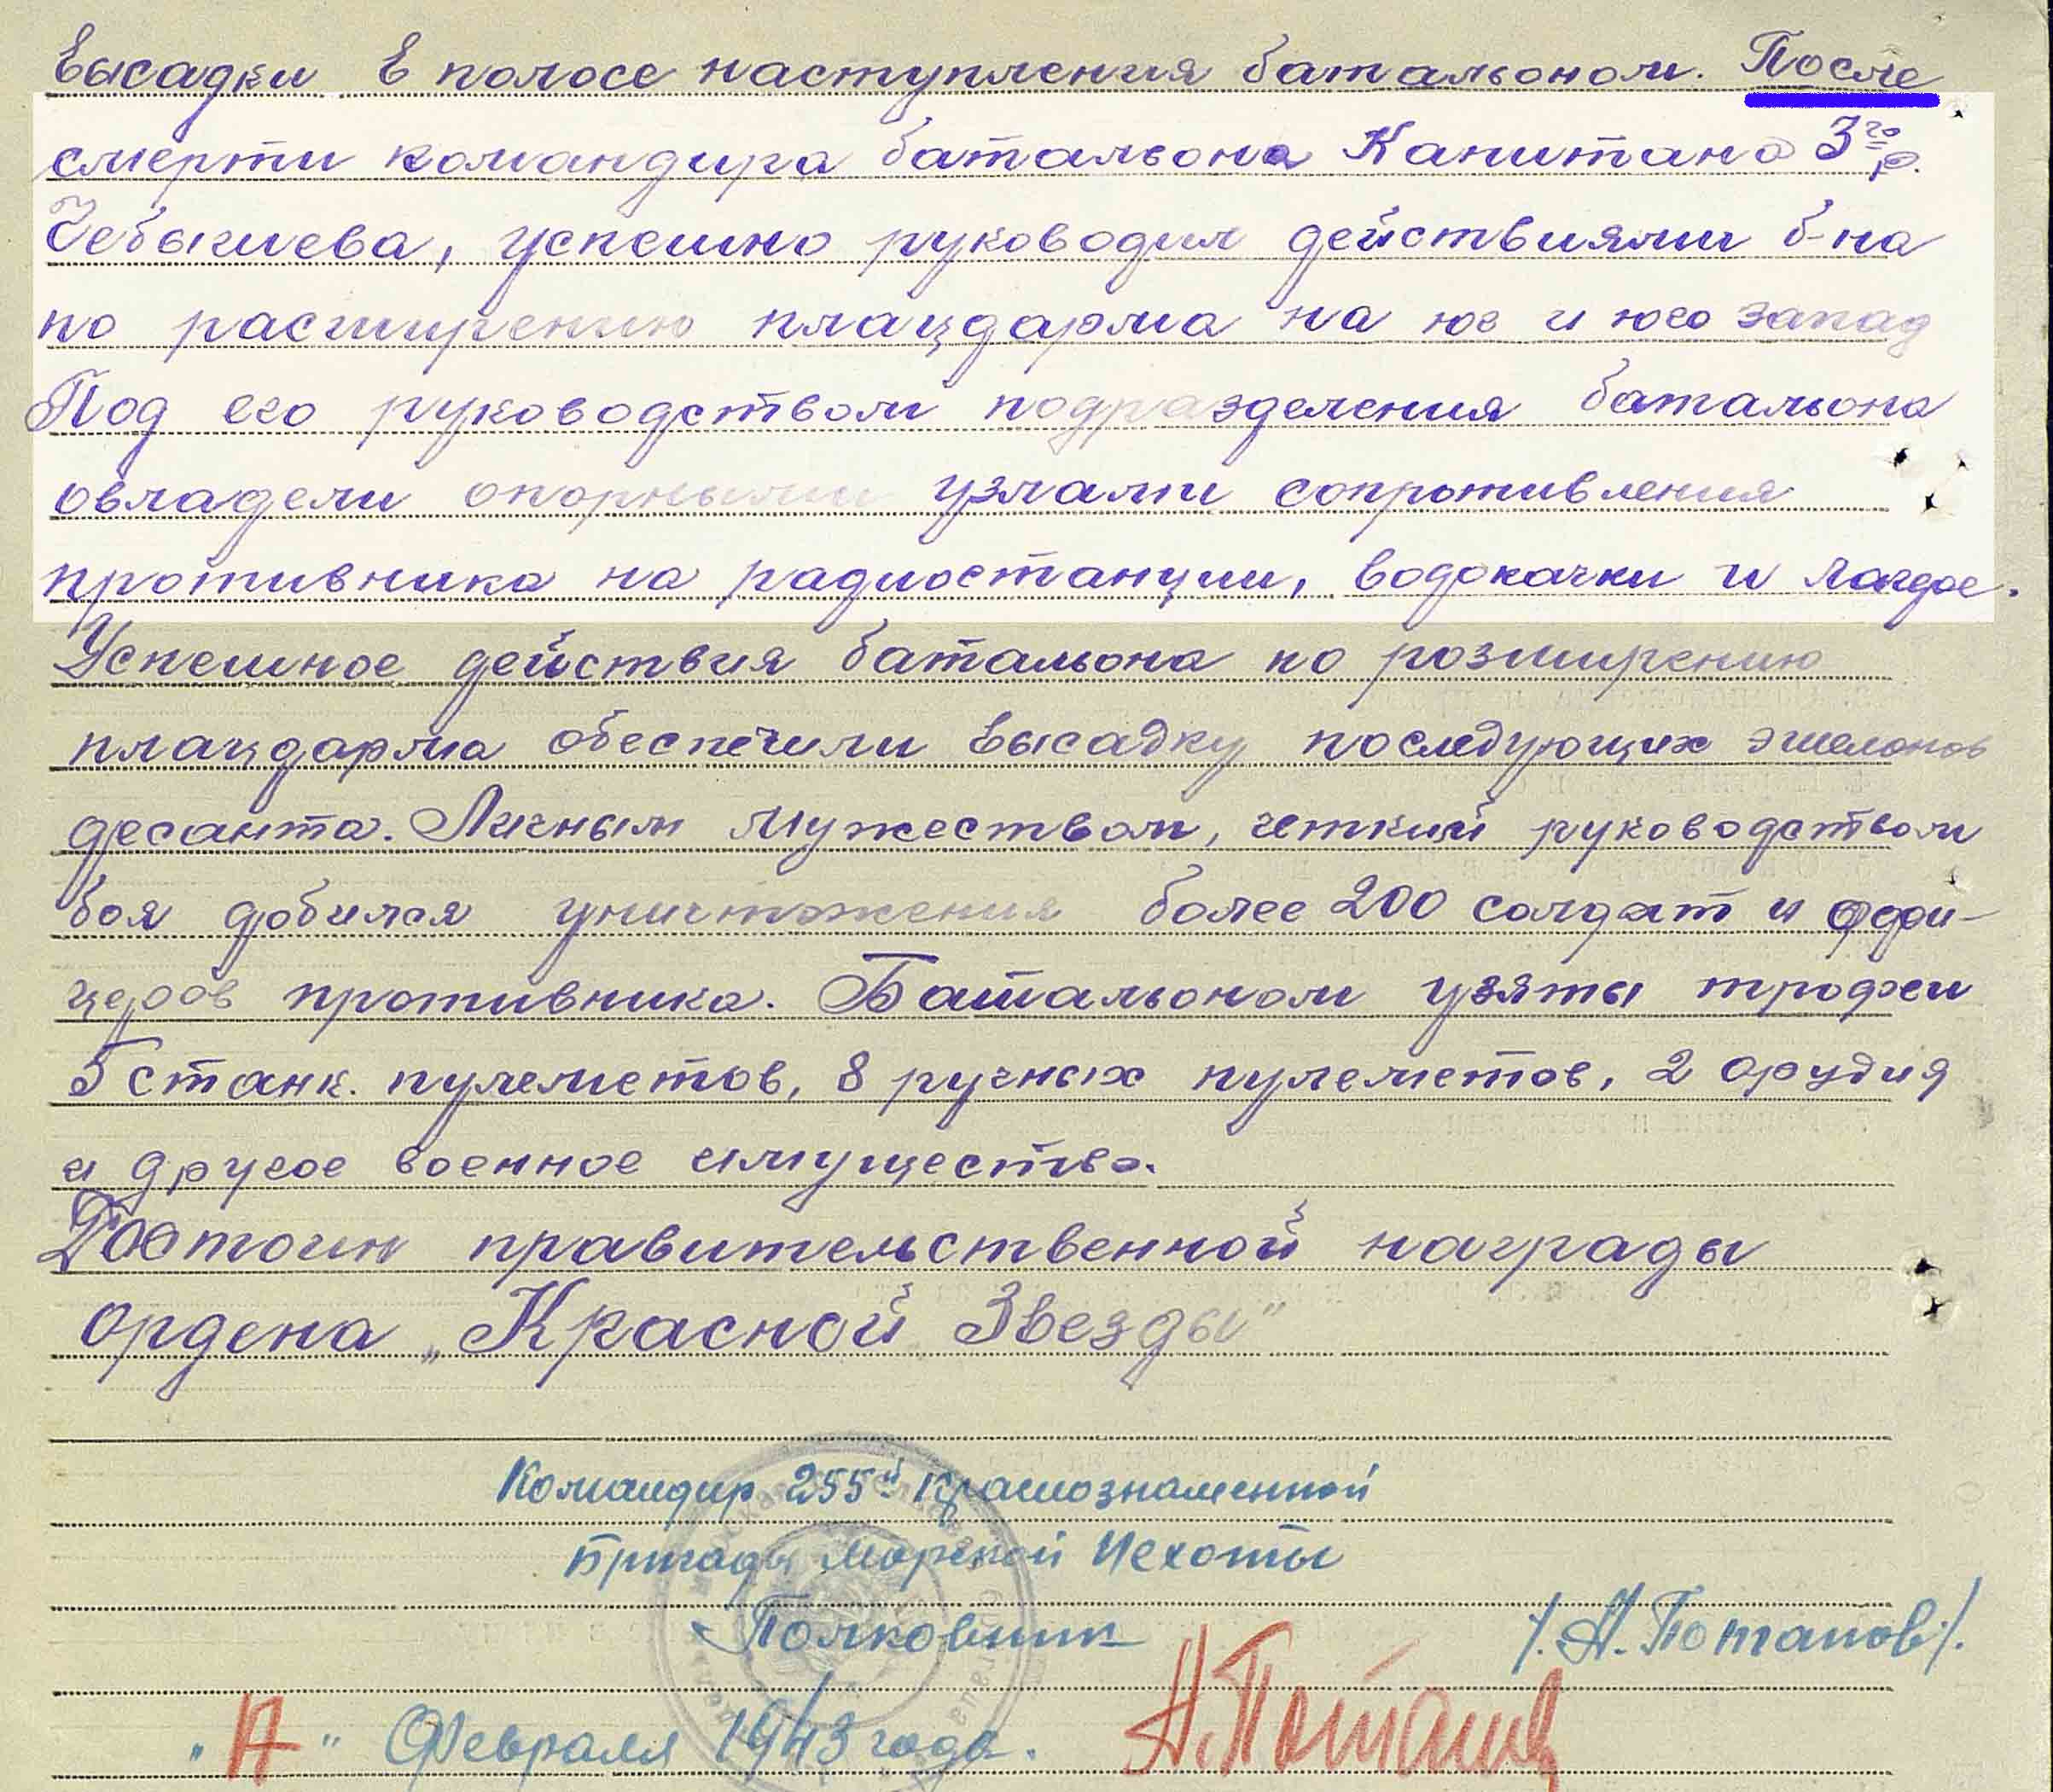 высадки в полосе наступления батальоном. После
смерти командира батальона Капитана 3го р.
Чебышева, успешно руководил действиями б-на
по расширению плацдарма на юг и юго запад
Под его руководством подразделения батальона
овладели опорными узлами сопротивления
противника на радиостанции, водокачки и Лагдое.
Успешное действия батальона по розширению
плацдарма обеспечили высадку последующих эшелонов
десанта. Личным мужеством, четкий руководством
боя добился уничтожения более 200 солдат и офи-
церов противника. Батальоном узяты трофеи
5 станк. пулеметов, 8 ручных пулеметов, 2 орудия
и другое военное имущество.
Достоин правительственной награды
ордена „Красной Звезды"
Командир 255й Краснознаменной
Бригады Морской Пехоты
Полковник /А. Потапов/.
А. Потапов
" Февраля 1943 года.